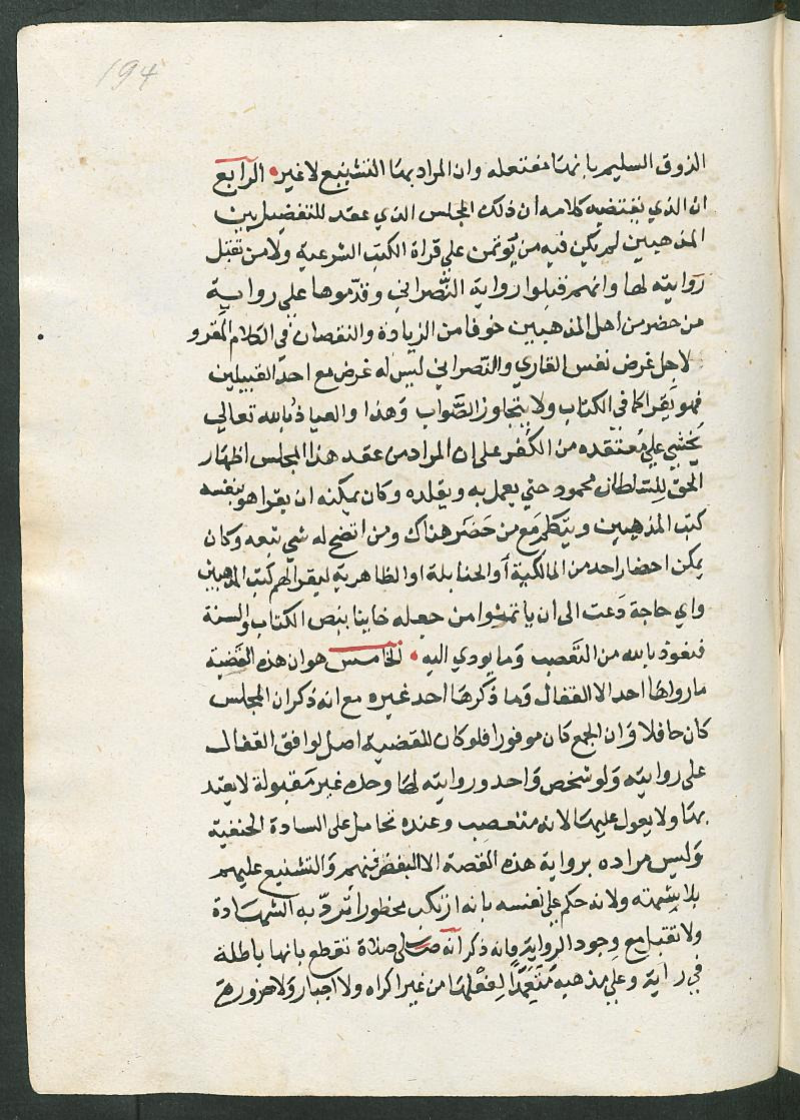 194
الذوق السليم بانها مفتعله وان المراد بها التشنيع لا غير الرابع
ان الذي يقتضيه كلامه ان ذلك المجلس الذي عقد للتفضيل بين
المذهبين لم يكن فيه من يوتمن على قراة الكتب الشرعية ولا من تقبل
روايته لها وانهم قبلوا رواية النصراني وقدموها على رواية
من حضر من اهل المذهبين خوفا من الزيادة والنقصان في الكلام المقرو
لاجل غرض نفس القاري والنصراني ليس له غرض مع احد القبيلين
فهو يقرا كما في الكتاب ولا يتجاوز الصواب وهذا والعياذ بالله تعالى
يخشي على معتقده من الكفر على ان المراد من عقد هذا المجلس اظهار
الحق للسلطان محمود حتي يعمل به ويقلده وكان يمكنه ان يقرا هو بنفسه
كتب المذهبين ويتكلم مع من حضر هناك ومن اتضح له شي تبعه وكان
يمكن احضار احد من المالكية أو الحنابلة او الظاهرية ليقرا لهم كتب المذهبين
واي حاجة دعت الى ان ياتمنوا من جعله خاينا بنص الكتاب والسنة
فنعوذ بالله من التعصب وما يودي اليه الخامس هو ان هذه القضية
ما رواها احد الا القفال وما ذكرها احد غيره مع انه ذكر ان المجلس
كان حافلا وان الجمع كان موفورا فلو كان للقضية اصل لوافق القفال
على روايته ولو شخص واحد وروايته لها وحده غير مقبولة لا يعتد
بها ولا يعول عليها لانه متعصب وعنده تحامل على السادة الحنفية
وليس مراده برواية هذه القصة الا البغض فيهم والتشنيع عليهم
بلا شبهته ولانه حكم على نفسه بانه ارتكب محظورا ترد به الشهادة
ولا تقبل مع وجود الرواية فانه ذكر انه صلى صلاة نقطع بانها باطلة
في راية وعلى مذهبه متعمدا لفعلها من غير اكراه ولا اجبار ولا ضرورة